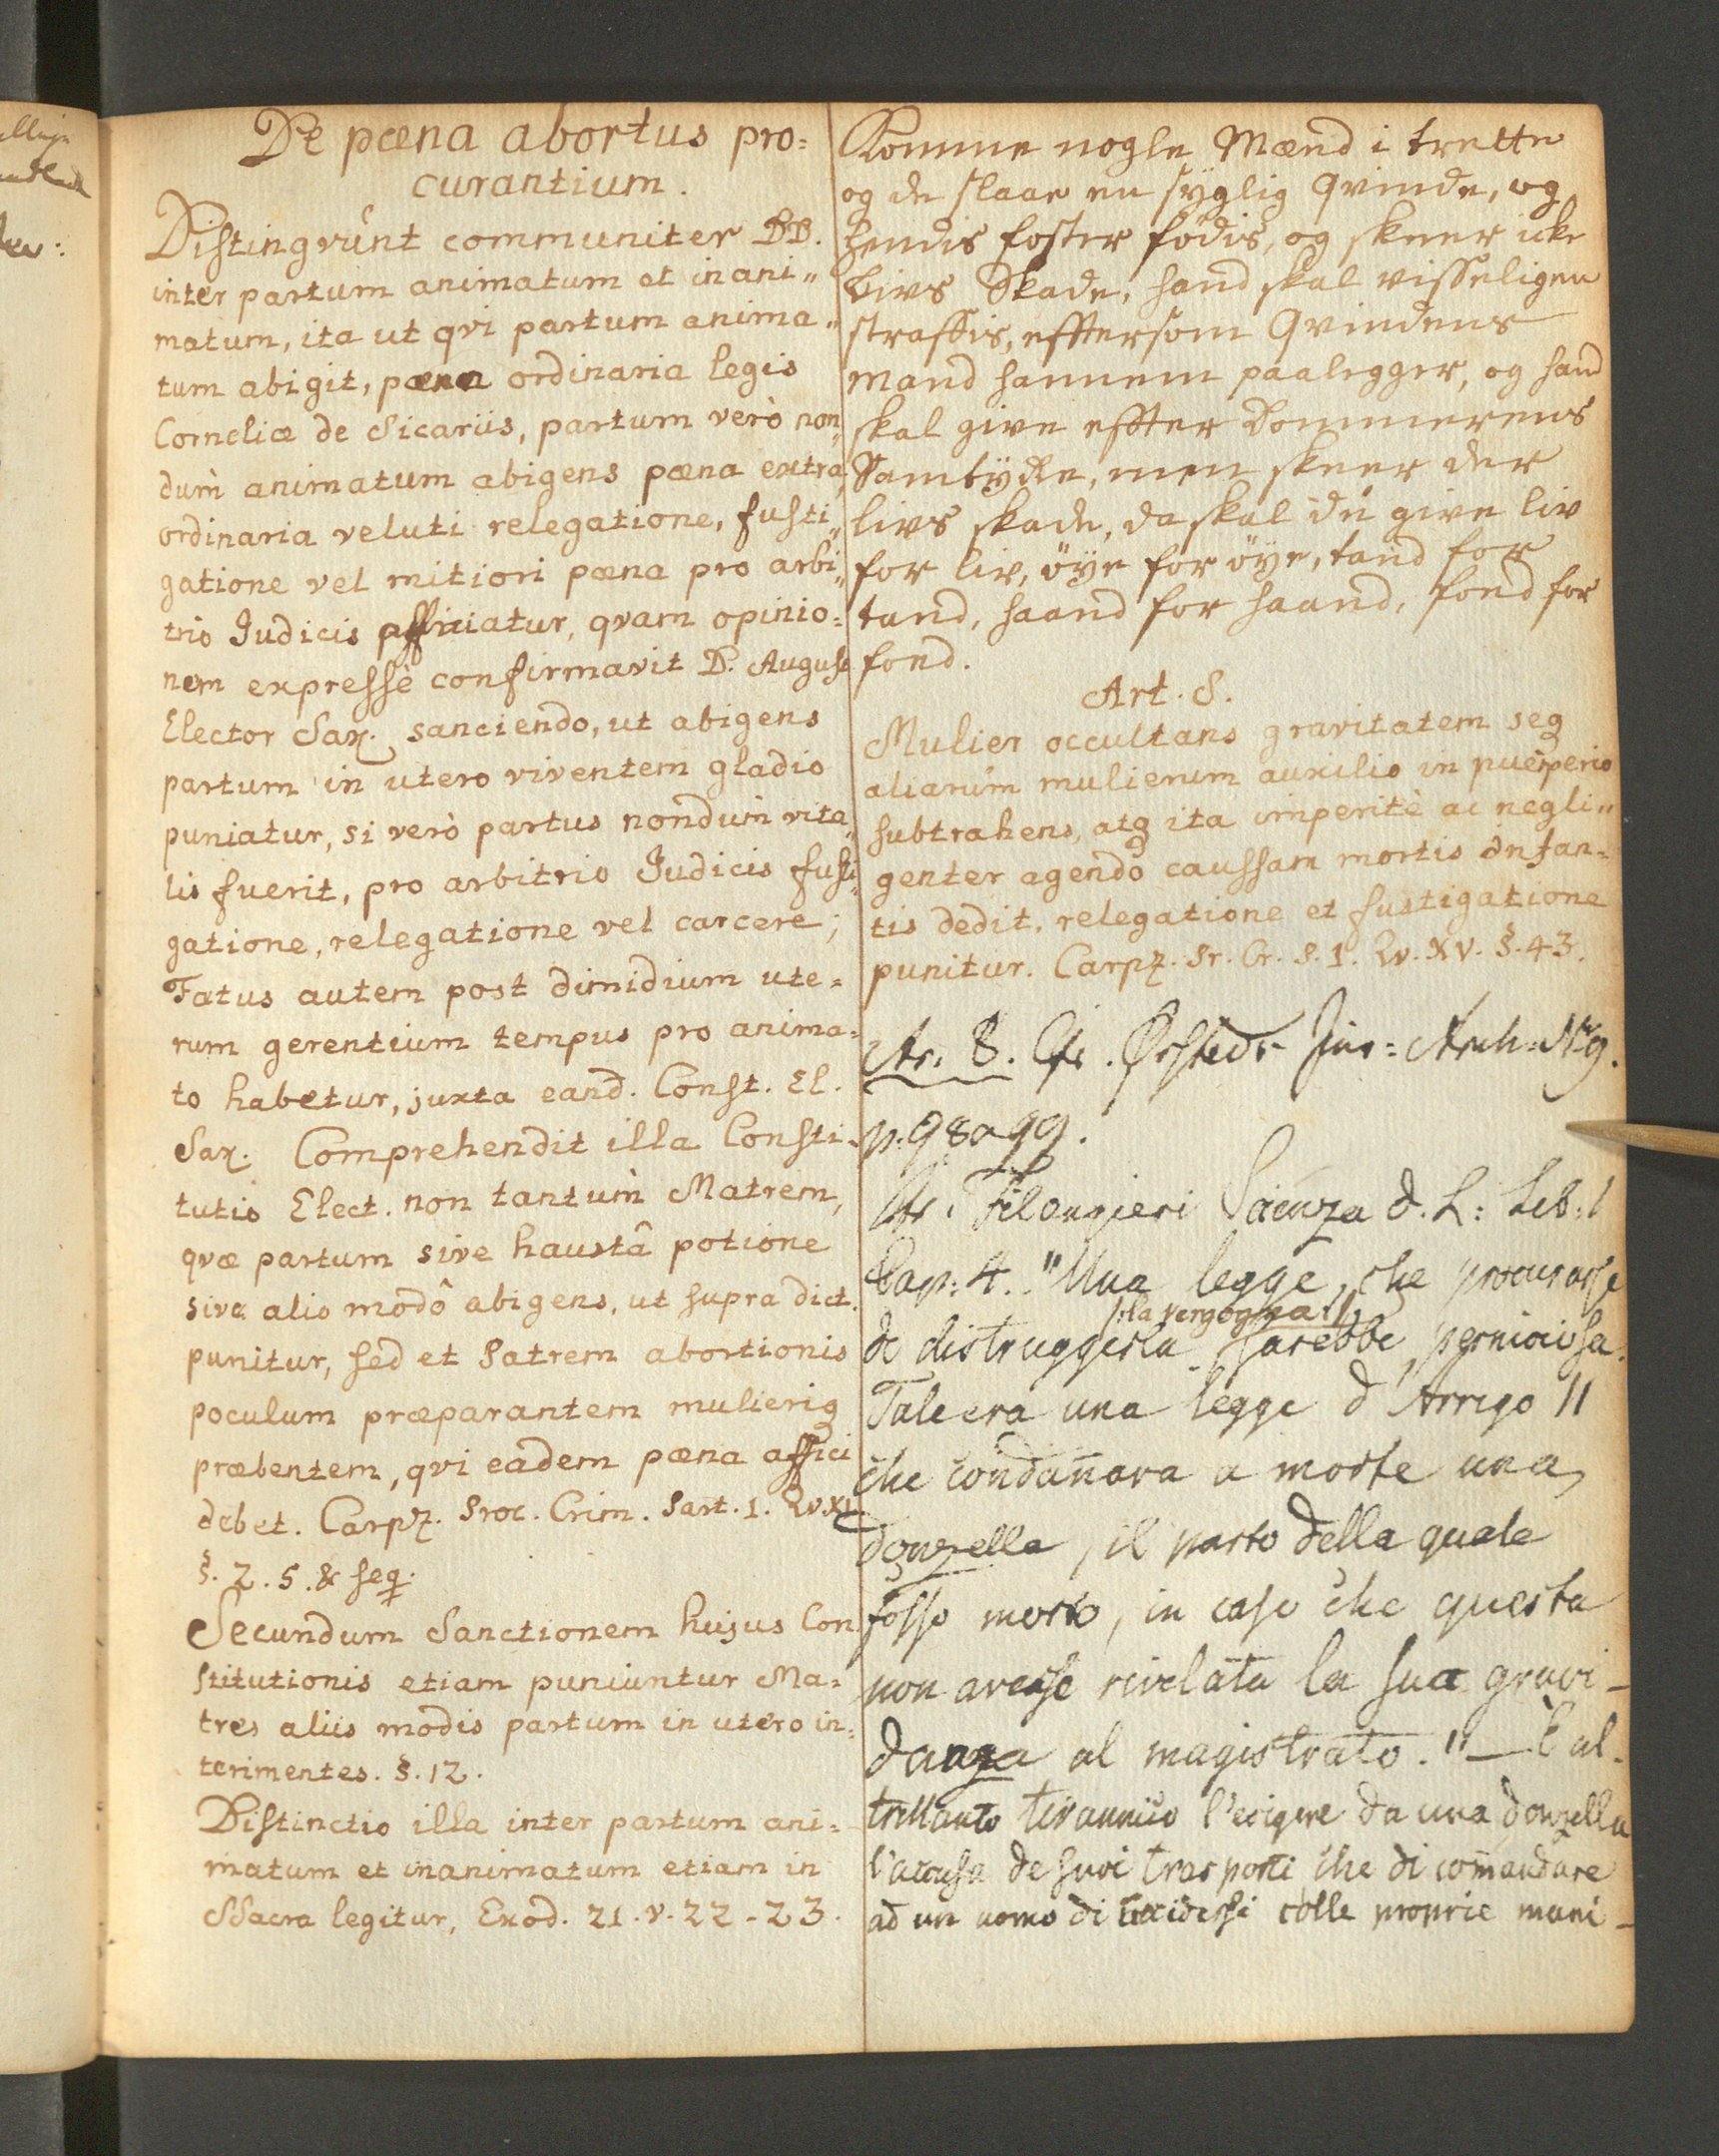 De pœna abortus pro=
curantium.
Distingvunt communiter DD.
inter partum animatum et inani„
matum, ita ut qvi partum anima„
tum abigit, pœna ordinaria legis
Corneliæ de Sicariis, partum verò non„
dum animatum abigens pœna extra„
ordinaria veluti relegatione, fusti„
gatione vel mitiori pœna pro arbi„
trio Judicis afficiatur, qvam opinio=
nem expressè confirmavit D. August
Elector Sax. sanciendo, ut abigens
partum in utero viventem gladio
puniatur, si verò partus nondum vita„
lis fuerit, pro arbitrio Judicis fusti„
gatione, relegatione vel carcere;
Fatus autem post dimidium ute=
rum gerentium tempus pro anima=
to habetur, juxta eand. Const. El.
Sax. Comprehendit illa Consti-
tutio Elect. non tantum Matrem,
qvæ partum sive haustâ potione
sive alio modô abigens, ut supra dict.
punitur, sed et Patrem abortionis
poculum præparantem mulieriq
præbentem, qvi eadem pœna affici
debet. Carpz. Proc. Crim. Part. 1. Qv. XI
§. 2. 5. & seq.
Secundum Sanctionem hujus Con
stitutionis etiam puniuntur Ma=
tres aliis modis partum in utero in=
terimentes. §. 12.
Distinctio illa inter partum ani=
matum et inanimatum etiam in
SSacra legitur, Exod. 21. v. 22-23.
Komme nogle Mænd i trette
og de slaar en syglig Qvinde, og
hendis foster fødis, og skeer icke
Livs Skade, hand skal visseligen
straffis, efftersom Qvindens
Mand hannem paalegger, og hand
skal give effter Dommerens
Samtycke, men skeer der
livs skade, da skal du give liv
for liv, öye for öye, tand for
tand, haand for haand, fond for
fond.
Art. 8.
Mulier occultans gravitatem seq
aliarum mulierum auxilio in puerperio
subtrahens, atq ita imperitè ac negli„
genter agendo caussam mortis infan=
tis dedit, relegatione et fustigatione
punitur. Carpz. Pr. Cr. P. 1. Qv. XV. §. 43.
Ar. 8. Cfr. Ørsteds Jur: Arch: No 9.
p. 98 og 99.
Cfr. Filangieri Scienza d. L: Lib: 1
Cap: 4. "Una legge, che procurasse
/:la vergogna:/
di distruggerla sarebbe perniciosa.
Tale era una legge d'Arrigo II
che condan̄ava a morte una
donzella, il parto della quale
fosse morto, in caso che questa
non avesse rivelata la sua gravi-
danza al magistrato." — È al-
trettanto tirannico l'esigere da una donzella
l'accusa de suoi trasporti che di com̄andare
ad un uomo di uccidersi colle proprie mani-